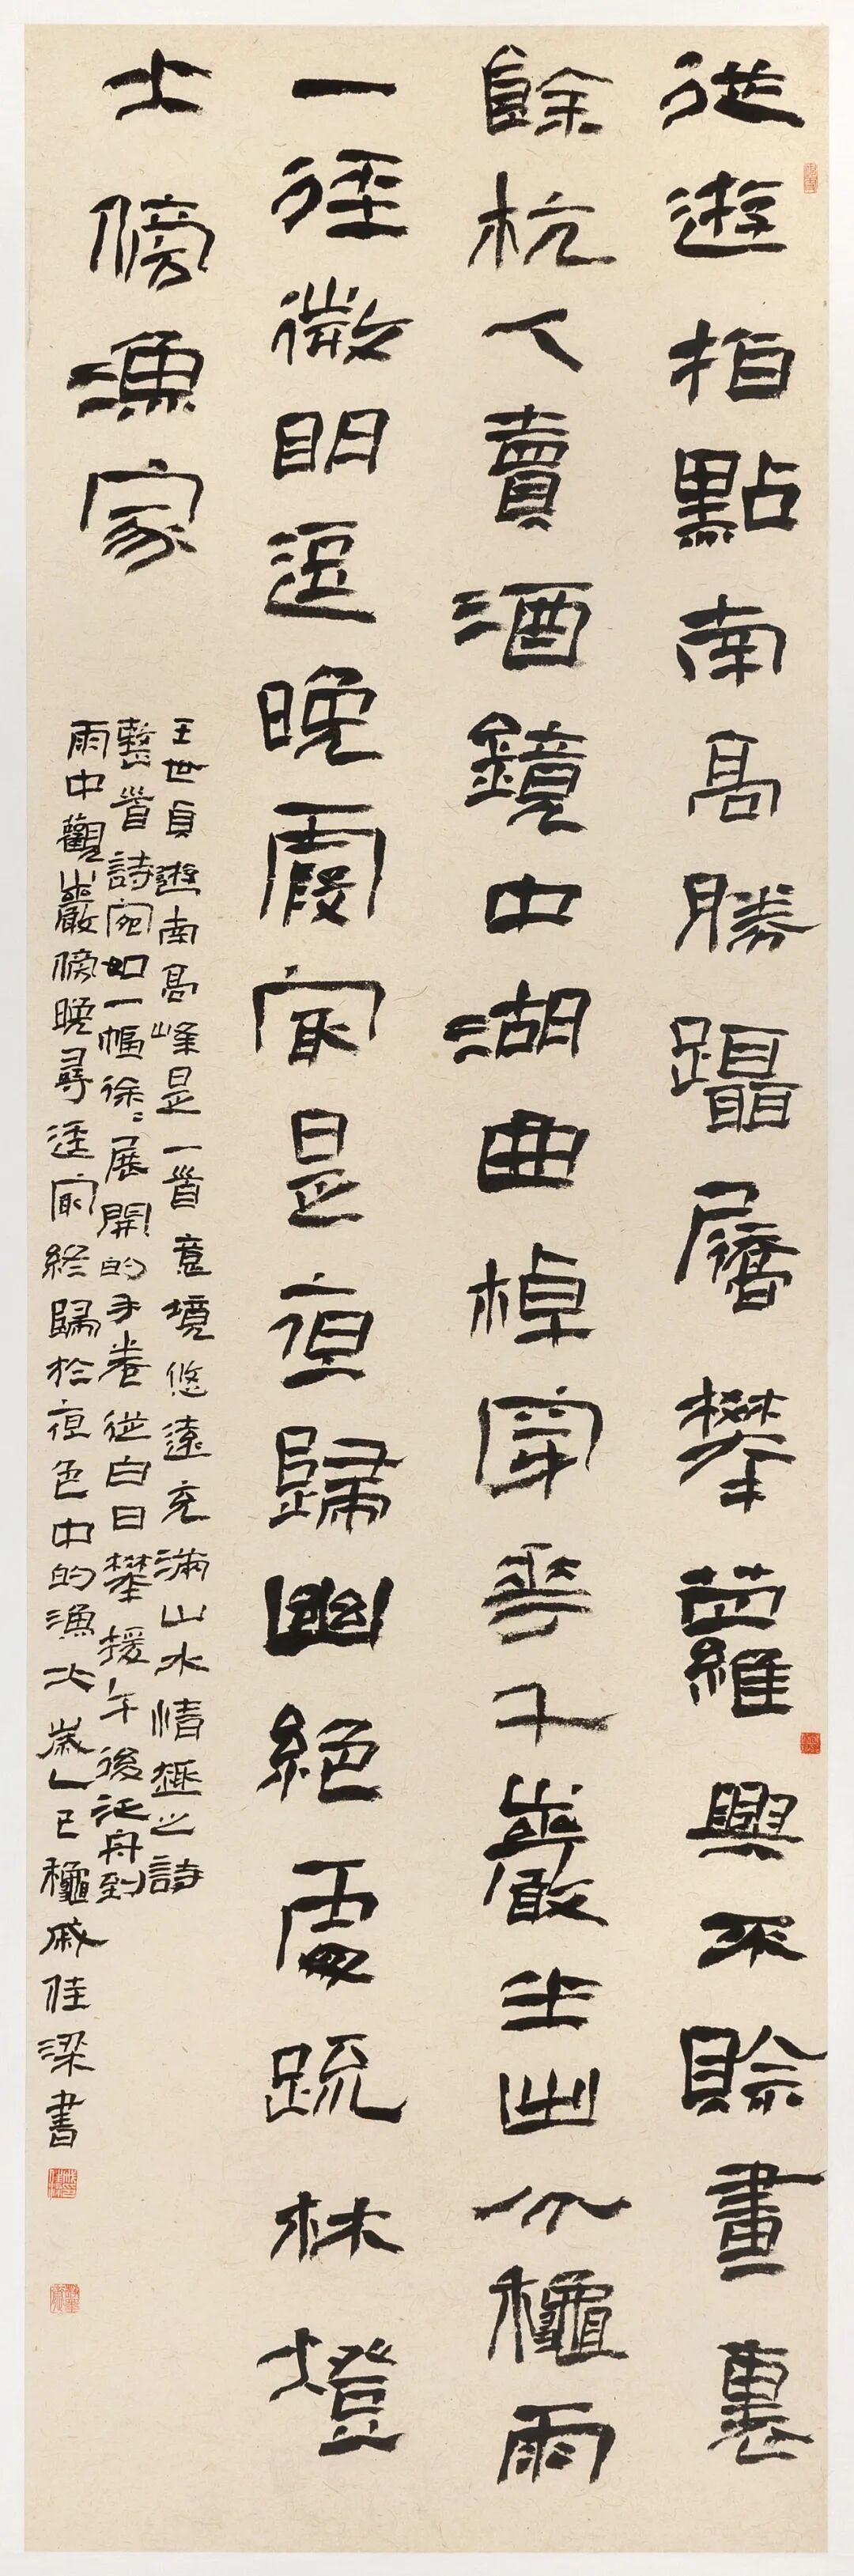 從遊指點南高勝躡屩攀蘿興不賒畫裏
餘杭人賣酒鏡中湖曲棹穿花千巖坐出分龝雨
一徑微明逗晚霞冣是夜歸幽絕處疏林燈
火傍漁家
王世貞遊南高峰是一首意境悠遠充滿山水情趣之詩
整首詩宛如一幅徐〻展開的手卷從白日攀援午後泛舟到
雨中觀巖傍晚尋逕冣終歸於夜色中的漁火歲乙巳龝戚佳梁書